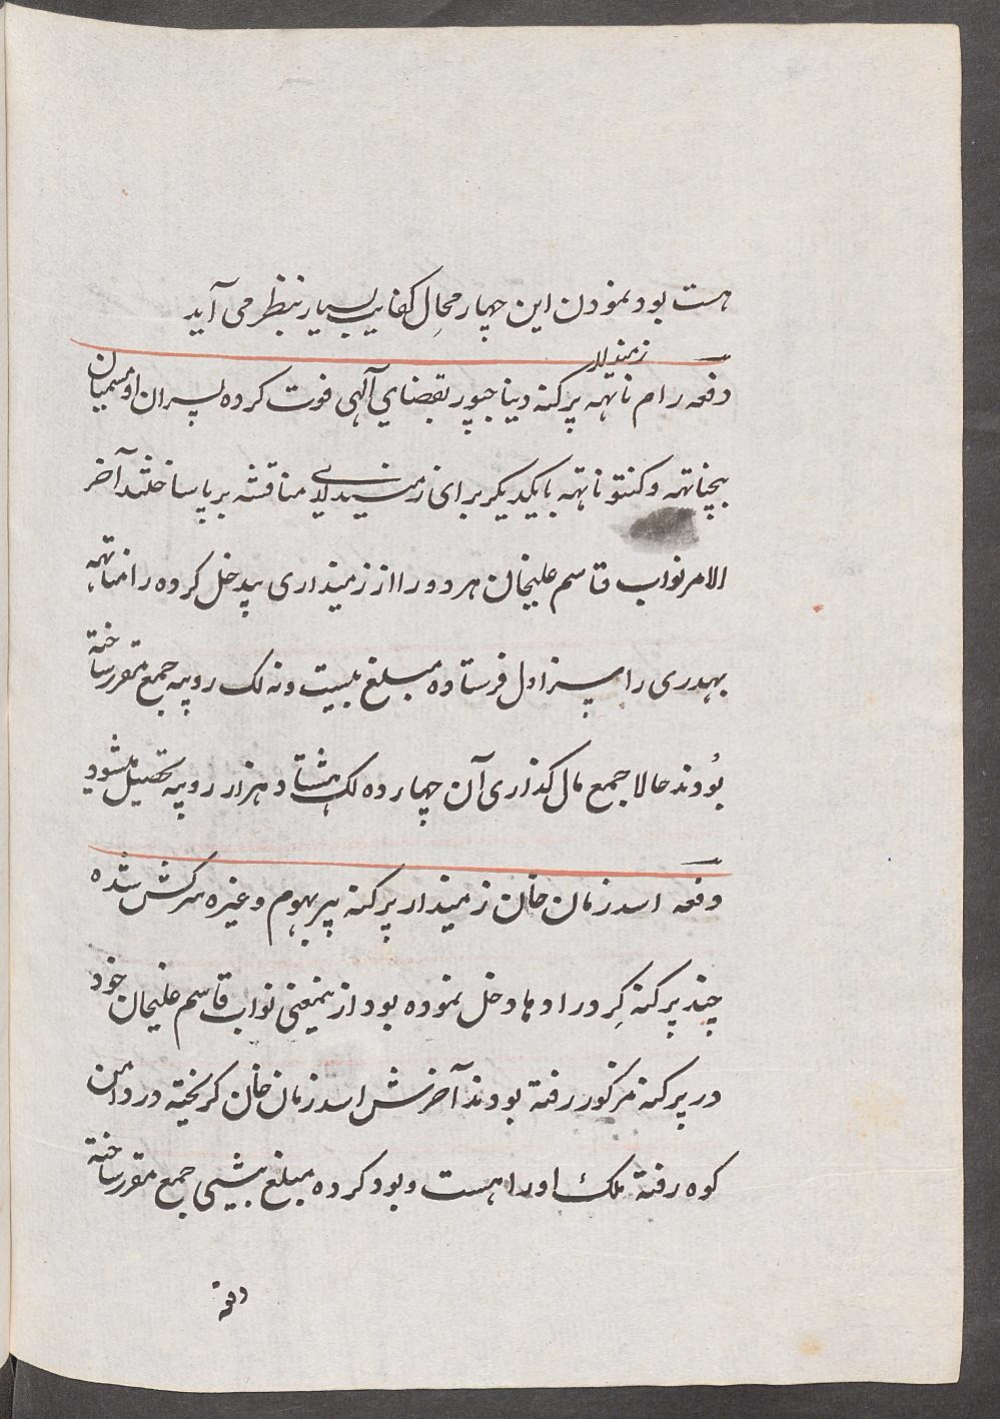 هست بود نمودن این چهار محالِ کفایت بسیار بنظر می آید
زمیندار
دفعه رام ناتهه پرکنه دیناجپور بقضاي آلهی فوت کرده پسران او مسمیان
بیجناتهه و کنتو ناتهه با یکدیکر برای زمینداری مناقشه برپا ساختند آخر
الامر نواب قاسم علیخان هر دو را از زمینداری بیدخل کرده رامناتهه
بهدری را سزاول فرستاده مبلغ بیست و نه لک روپیه جمع مقرر ساخته
بُودند حالا جمع مال کذاری آن چهارده لک هشتاد هزار روپیه تحصیل میشود
دفعه اسد زمان خان زمیندار پرکنه بیربهوم وغیره سرکش شده
چند پرکنه کِرد را و ها دخل نموده بود ازینمعنی نواب قاسم علیخان خود
در پرکنه مزکور رفته بودند آخرش اسد زمان خان کریخته در دامن
کوه رفته ملک او را هست و بود کرده مبلغ بیشی جمع مقرر ساخته
دفعه